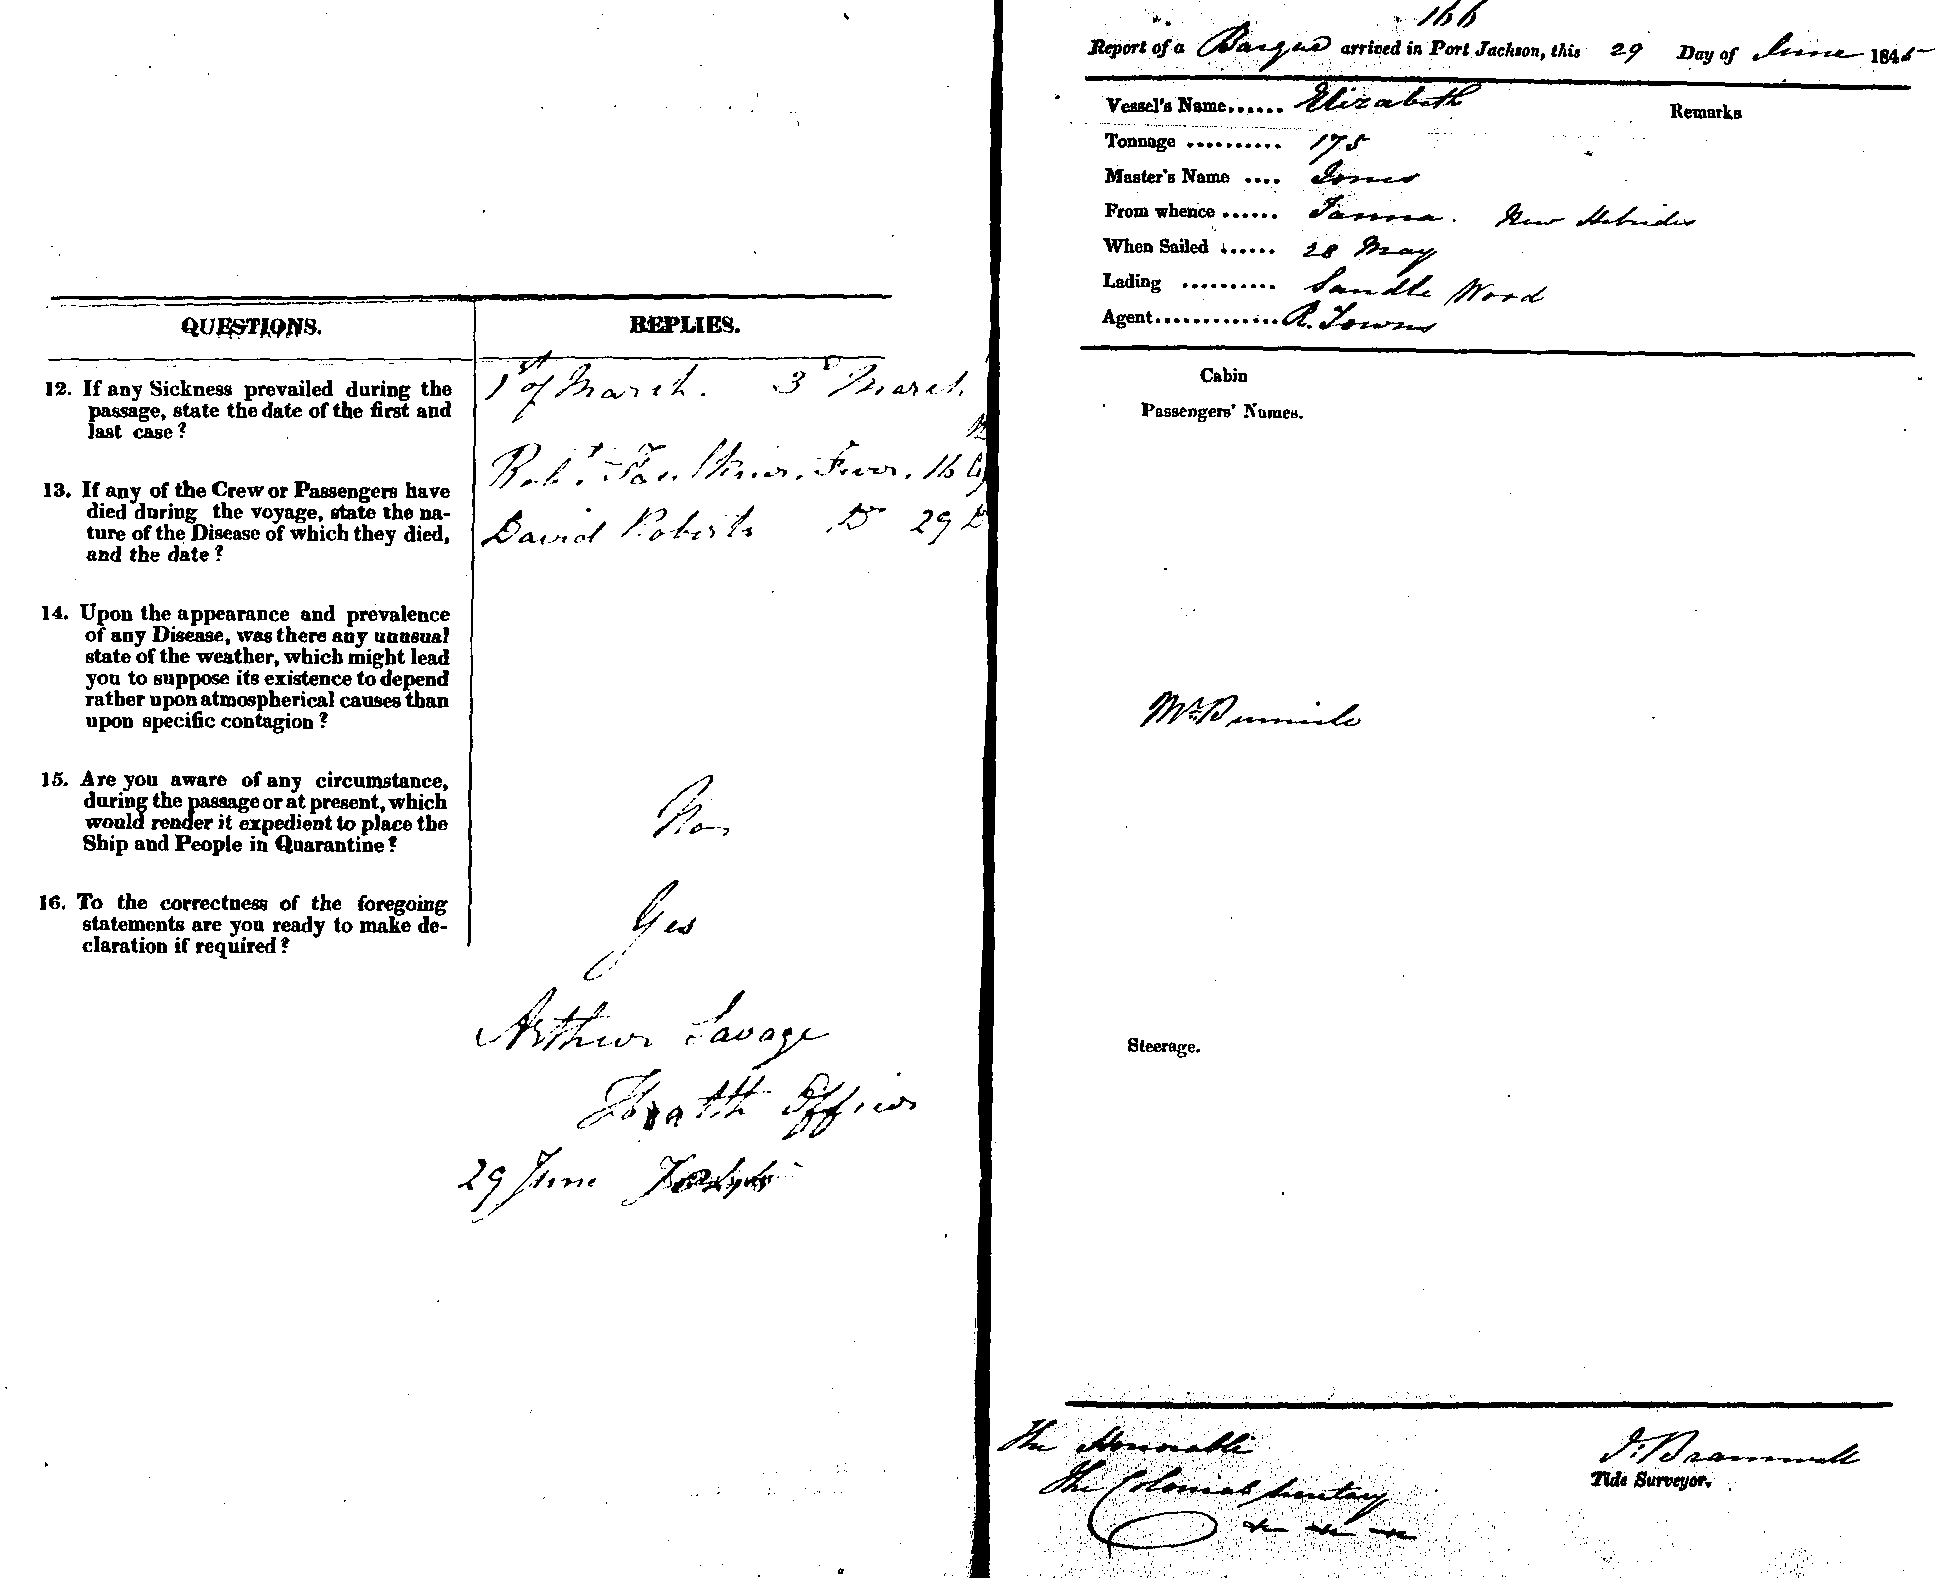 QUESTIONS.
REPLIES.
12. If any Sickness prevailed during the
passage, state the date of the first and
last case?
1st of March. 3d March
13. If any of the Crew or Passengers have
died during the voyage, state the na-
ture of the Disease of which they died,
and the date?
Robt. Faulkner. Fever. 16
David Roberts Do 29
14. Upon the appearance and prevalence
of any Disease, was there any unusual
state of the weather, which might lead
you to suppose its existence to depend
rather upon atmospherical causes than
upon specific contagion?
15. Are you aware of any circumstance,
during the passage or at present, which
would render it expedient to place the
Ship and People in Quarantine?
No
16. To the correctness of the foregoing
statements are you ready to make de-
claration if required?
Yes
Arthur Savage
Health Officer
29 June
166
Report of a Barque arrived in Port Jackson, this 29 Day of June 1845
Vessel's Name...... Elizabeth
Remarks
Tonnage .......... 175
Master's Name .... Jones
From whence ...... Tanna. New Hebrides
When Sailed ...... 28 May
Lading .......... Sandle Wood
Agent............. R. Towns
Cabin
Passengers' Names.
Steerage.
The Honorable
The Colonial Secretary
J. Bramwell
Tide Surveyor.